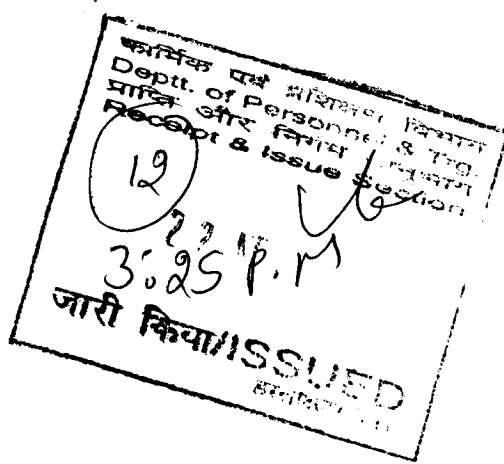 कार्मिक एवं प्रशिक्षण विभाग
Deptt. of Personnel & Trg.
प्राप्ति और निर्गम
Receipt & Issue Section
12
3:25 P.M
जारी किया/ISSUED